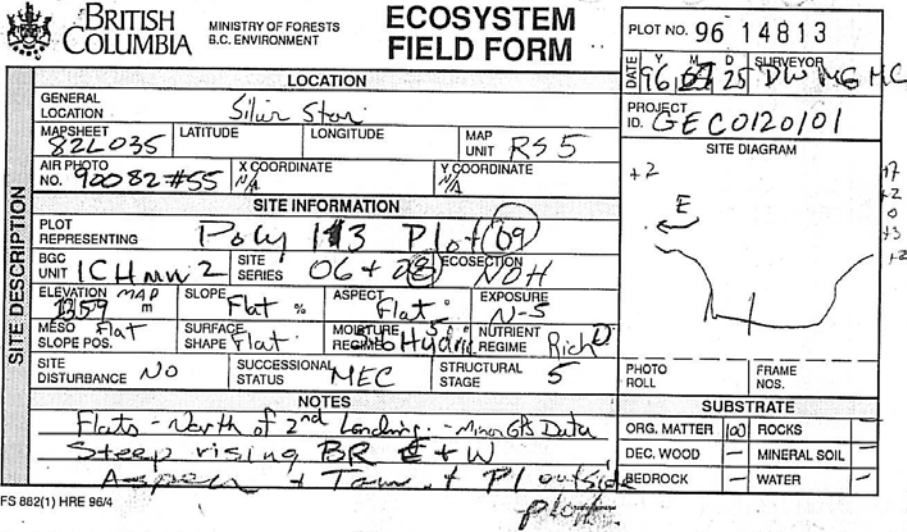 BRITISH COLUMBIA
MINISTRY OF FORESTS
B.C. ENVIRONMENT
ECOSYSTEM
FIELD FORM
PLOT NO. 96 14813
DATE Y M D 96 25 SURVEYOR DW MG MC
PROJECT ID. GEC0120101
LOCATION
GENERAL LOCATION Silver Star
MAPSHEET 82L035 LATITUDE LONGITUDE MAP UNIT RS 5
AIR PHOTO NO. 90082 #55 X COORDINATE N/A Y COORDINATE N/A
SITE DESCRIPTION
SITE INFORMATION
PLOT REPRESENTING Poly 113 Plot 09
BGC UNIT ICHmw2 SITE SERIES 06 + 08 ECOSECTION NOH
ELEVATION MAP 1359 m SLOPE Flat % ASPECT Flat ° EXPOSURE N-S
MESO SLOPE POS. Flat SURFACE SHAPE Flat MOISTURE REGIME 5 Hydric NUTRIENT REGIME Rich D
SITE DISTURBANCE NO SUCCESSIONAL STATUS MEC STRUCTURAL STAGE 5
NOTES
Flats - North of 2nd Landing. - Minor GPS Data
Steep rising BR E + W
Aspen + + Pl outside
plot
SITE DIAGRAM
+2
E
+7
+2
0
+3
+2
PHOTO ROLL FRAME NOS.
SUBSTRATE
ORG. MATTER 100 ROCKS
DEC. WOOD — MINERAL SOIL —
BEDROCK — WATER —
FS 882(1) HRE 96/4